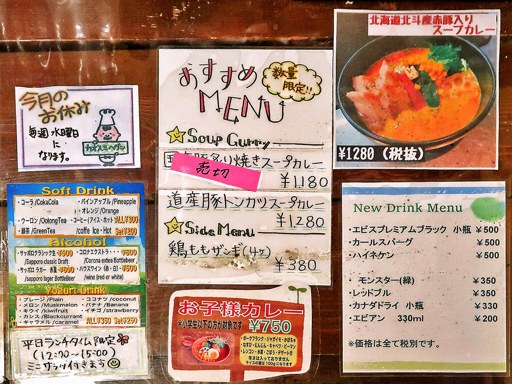 今月の
お休み
毎週水曜日
に
なります。
おすすめ
MENU
数量
限定!!
Soup Curry
豚炙り焼きスープカレー
売切
¥1,180
道産豚トンカツスープカレー
¥1,280
Side Menu
鶏ももザンギ(4ヶ)
¥380
北海道北斗産赤豚入り
スープカレー
¥1280 (税抜)
Soft Drink
・コーラ/CokaCola
・パインアップル/Pineapple
・オレンジ/Orange
・ウーロン/OolongTea
・コーヒー(アイス・ホット)
ALL¥300
・緑茶/GreenTea
coffe Ice・Hot
Set¥250
Alcohol
・サッポロクラシック 生¥500
/Sapporo classic Craft
・コロナエクストラ・・¥600
/Corona extea Bottebeer
・サッポロ ラガー 水曜 ¥600
/sapporo lager BottleBeer
・ハウスワイン(赤・白) ¥500
/wine (red or white)
Yogurt Drink
・プレーン/Plain
・ココナツ/coconut
・メロン/Muskmelon
・バナナ/Banana
・キウイ/kiwifruit
・イチゴ/strawberry
・カシス/Blackcurrant
・キャラメル/caramel
平日ランチタイム限定
(12:00~15:00)
ミニサラダ付きます
お子様カレー
※小学生以下の方が対象です
¥750
New Drink Menu
・エビスプレミアムブラック 小瓶 ¥500
・カールスバーグ ¥500
・ハイネケン ¥500
モンスター(緑) ¥350
・レッドブル ¥350
・カナダドライ 小瓶 ¥330
・エビアン 330ml ¥200
※価格は全て税別です。